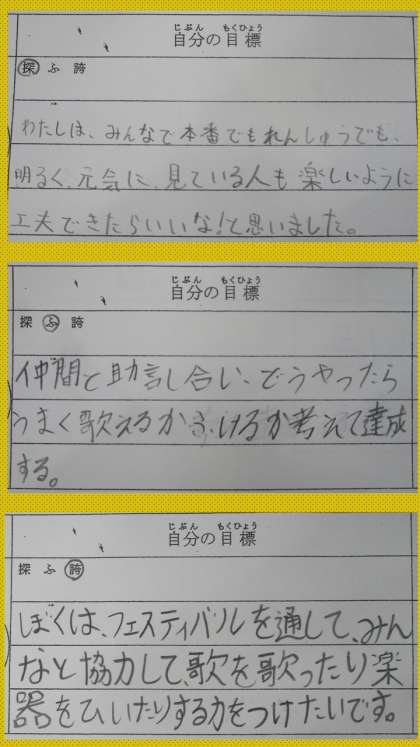 じぶん もくひょう
自分の目標
探 ふ 誇
わたしは、みんなで本番でもれんしゅうでも、
明るく、元気に、見ている人も楽しいように
工夫できたらいいな!と思いました。
じぶん もくひょう
自分の目標
探 ふ 誇
仲間と助言し合い、どうやったら
うまく歌えるか ふけるか考えて達成
する。
じぶん もくひょう
自分の目標
探 ふ 誇
ぼくは、フェスティバルを通して、みん
なと協力して、歌を歌ったり楽
器をひいたりする力をつけたいです。